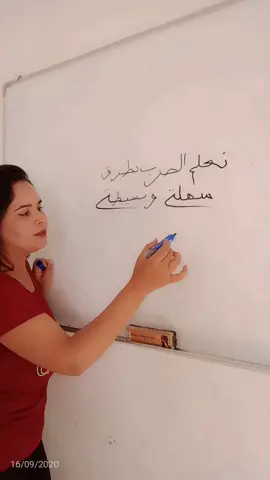 نعلم الضرب بطرق
سهلة وبسيطة
16/09/2020